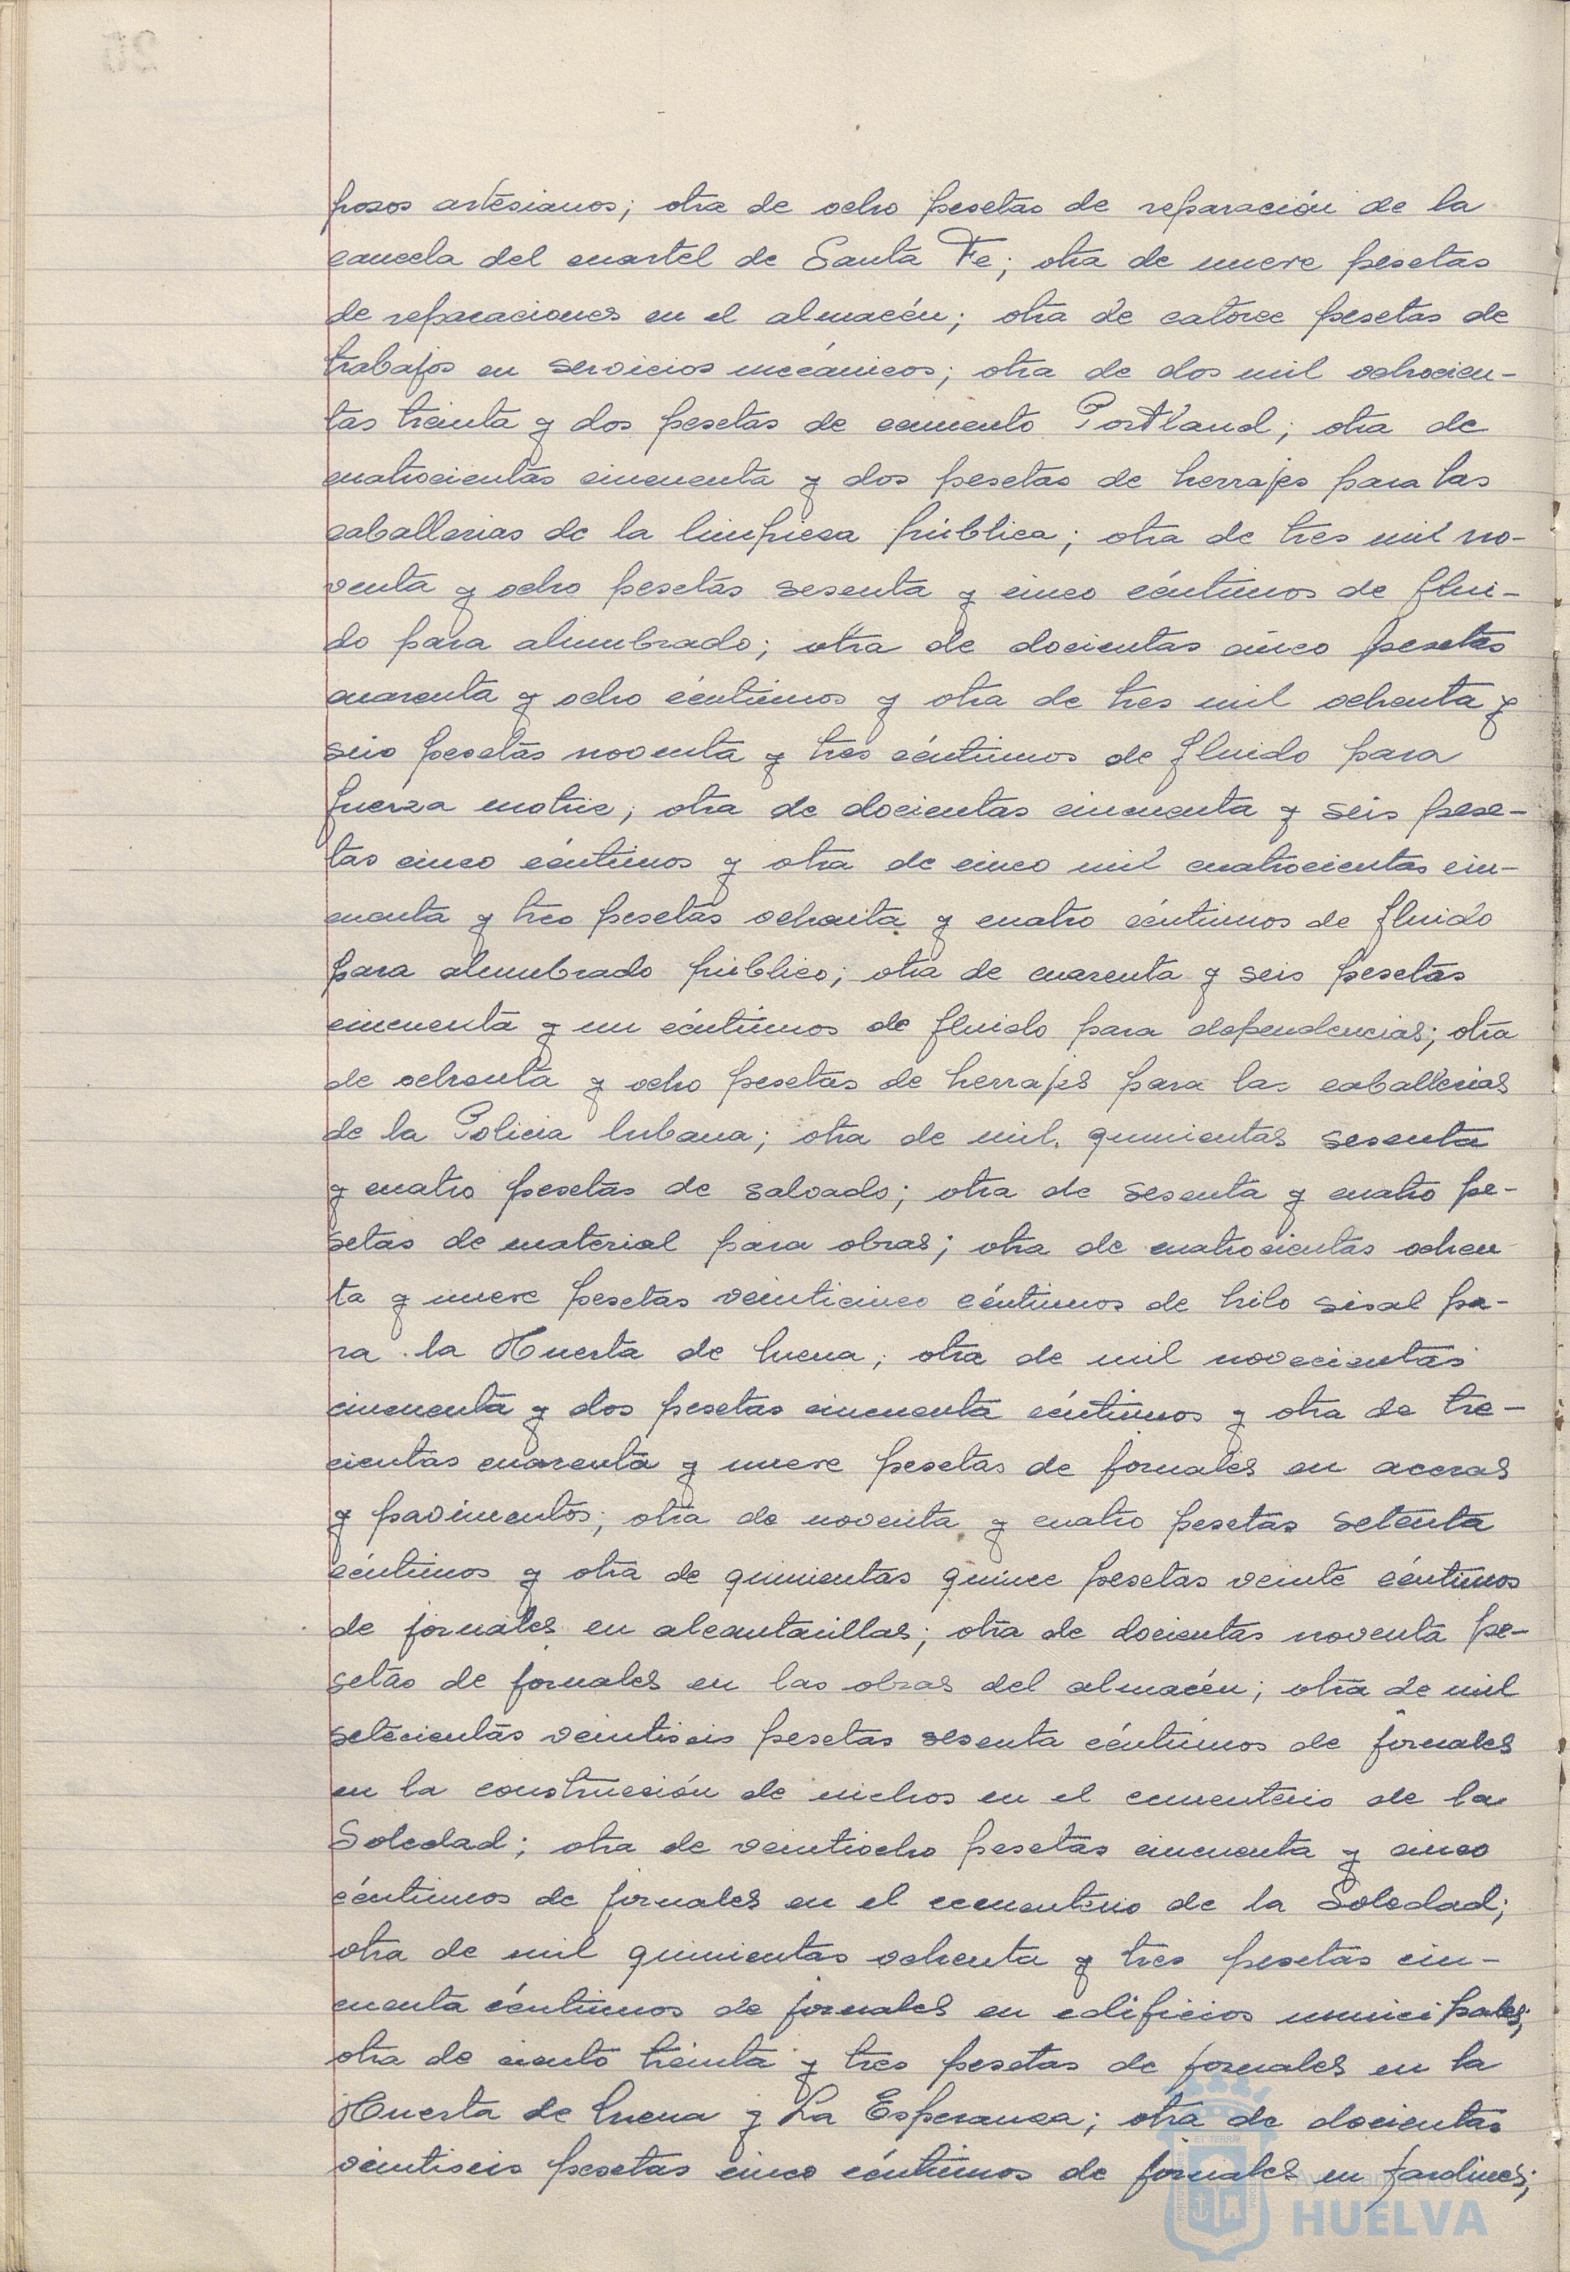 pozos artesianos; otra de ocho pesetas de reparación de la
cancela del cuartel de Santa Fe; otra de nueve pesetas
de reparaciones en el almacén; otra de catorce pesetas de
trabajos en servicios mecánicos; otra de dos mil ochocien-
tas treinta y dos pesetas de cemento Portland; otra de
cuatrocientas cincuenta y dos pesetas de herrajes para las
caballerias de la limpieza pública; otra de tres mil no-
venta y ocho pesetas sesenta y cinco céntimos de flui-
do para alumbrado; otra de docientas cinco pesetas
cuarenta y ocho céntimos y otra de tres mil ochenta y
seis pesetas noventa y tres céntimos de fluido para
fuerza motriz; otra de docientas cincuenta y seis pese-
tas cinco céntimos y otra de cinco mil cuatrocientas cin-
cuenta y tres pesetas ochenta y cuatro céntimos de fluido
para alumbrado público; otra de cuarenta y seis pesetas
cincuenta y un céntimos de fluido para dependencias; otra
de ochenta y ocho pesetas de herrajes para las caballerias
de la Policia Urbana; otra de mil quinientas sesenta
y cuatro pesetas de salvado; otra de sesenta y cuatro pe-
setas de material para obras; otra de cuatrocientas ochen
ta y nueve pesetas veinticinco céntimos de hilo sisal pa-
ra la Huerta de Mena; otra de mil novecientas
cincuenta y dos pesetas cincuenta céntimos y otra de tre-
cientas cuarenta y nueve pesetas de jornales en aceras
y pavimentos; otra de noventa y cuatro pesetas setenta
céntimos y otra de quinientas quince pesetas veinte céntimos
de jornales en alcantarillas; otra de docientas noventa pe-
setas de jornales en las obras del almacén; otra de mil
setecientas veintiseis pesetas sesenta céntimos de jornales
en la construcción de nichos en el cementerio de la
Soledad; otra de veintiocho pesetas cincuenta y cinco
céntimos de jornales en el cementerio de la Soledad;
otra de mil quinientas ochenta y tres pesetas cin-
cuenta céntimos de jornales en edificios municipales;
otra de ciento treinta y tres pesetas de jornales en la
Huerta de Mena y La Esperanza; otra de docientas
veintiseis pesetas cinco céntimos de jornales en jardines;
Ayuntamiento de
HUELVA